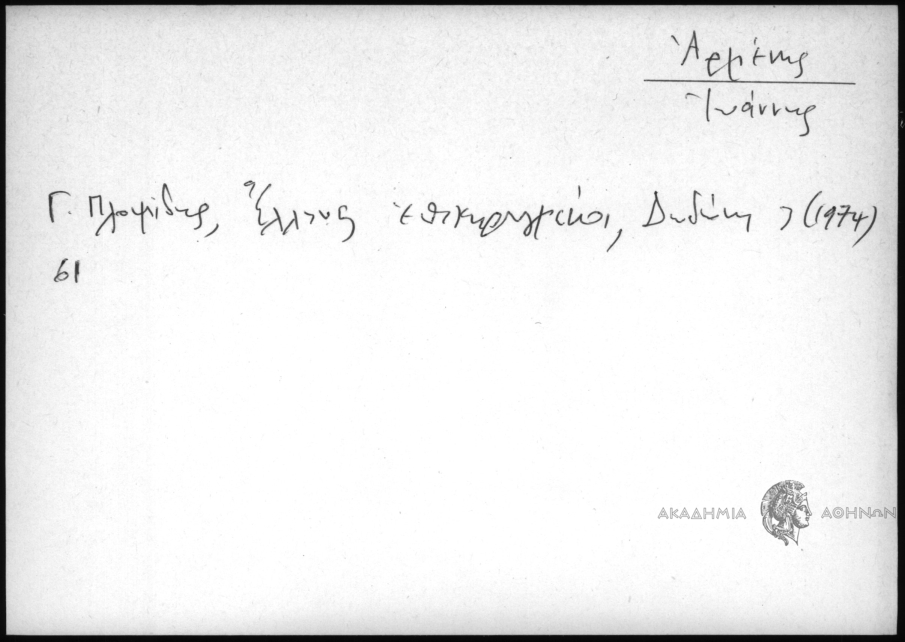 Ἀρμένης
Ἰωάννης
Γ. Πλουμίδης, Ἕλληνες ἐπικηρυγμένοι, Δωδώνη 3 (1974)
61
ΑΚΑΔΗΜΙΑ ΑΘΗΝΩΝ